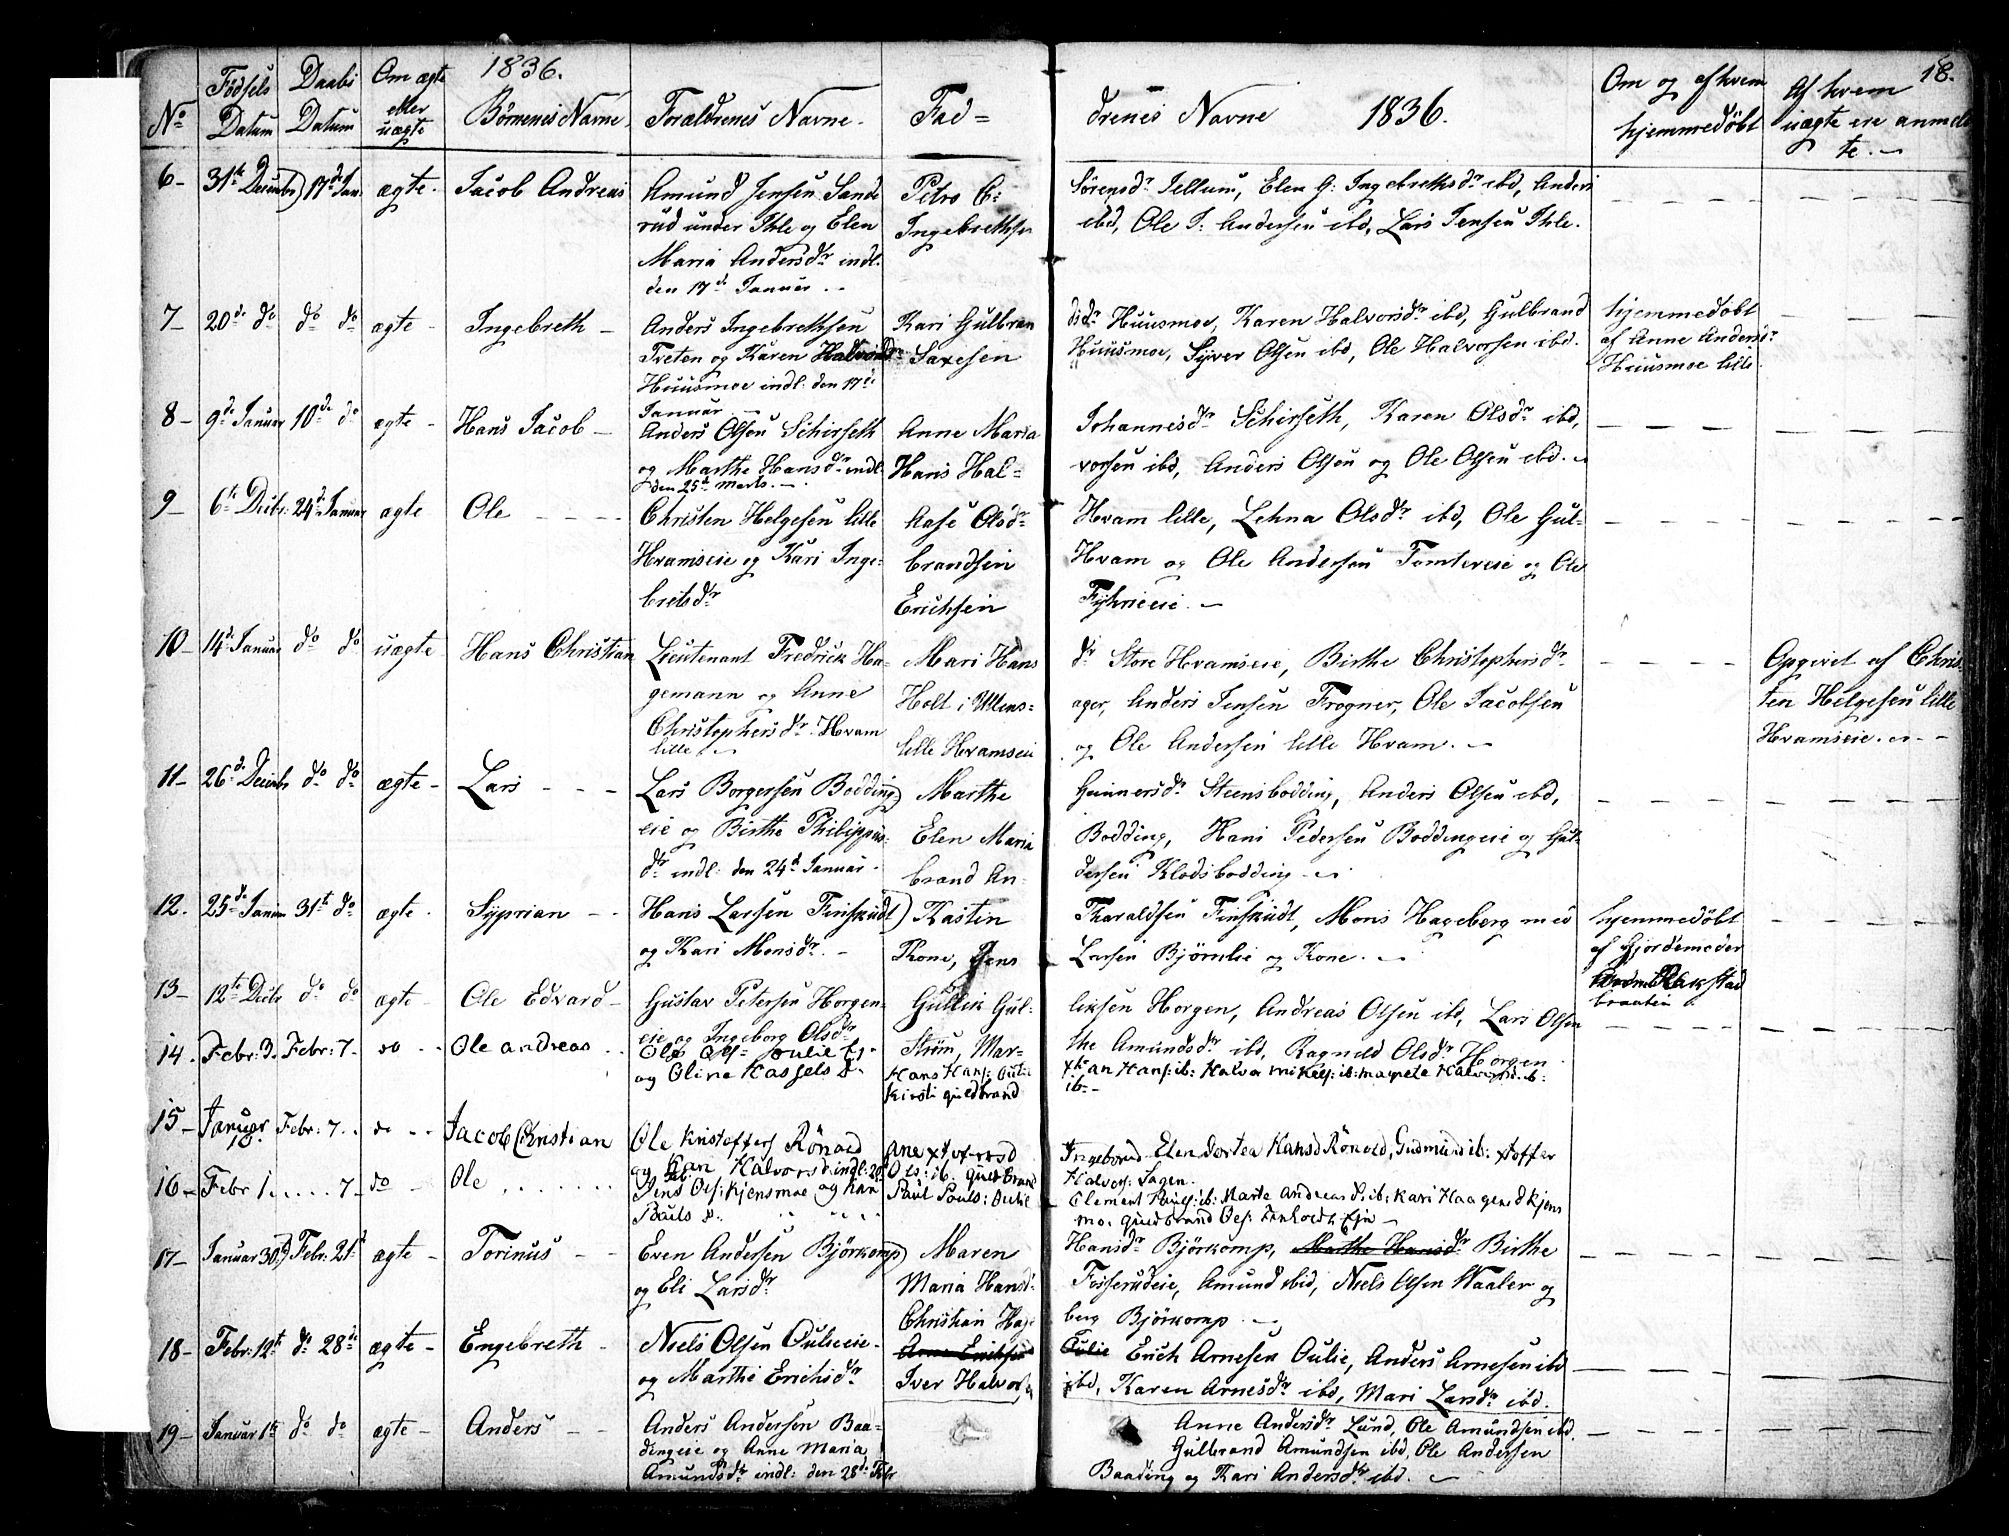 1836.
1836.
18.
No
Fødsels Datum
Daabs Datum
Om ægte eller uægte
Børnenes Navne.
Forældrenes Navne.
Fad=
drenes Navne
Om og af hvem hjemmedøbt
Af hvem uægte ere anmeldte.
6 31te Decembr 17de Jan. ægte. Jacob Andreas
Amund Jensen Sande
rud under Ihle og Elen
Maria Andersdr indl:
den 17de Januar.
Petro C:
Sørensdr Jellum, Elen G: Ingebrethsdr ibd, Anders
Ingebrethsen
ibd, Ole J: Andersen ibd, Lars Jensen Ihle.
7 20de do do do ægte Ingebreth
Anders Ingebrethsen
Treton og Karen Halvorsdr
Huusmoe indl: den 17de
Januar
Kari Gulbran
dsdr Huusmoe, Karen Halvorsdr ibd, Gulbrand
Saxesen
Huusmoe, Syver Olsen ibd, Ole Halvorsen ibd.
hjemmedøbt
af Anne Andersdr
Huusmoe lille.
8 9de Januar 10de do ægte Hans Jacob
Anders Olsen Schirseth
og Marthe Hansdr indl:
den 25de Marts.
Anne Maria
Johannesdr Schirseth, Karen Olsdr ibd,
Hans Hal=
vorsen ibd, Anders Olsen og Ole Olsen ibd.
9 6te Decbr: 24de Januar ægte Ole
Christen Helgesen lille
Hvamseie og Kari Inge=
bretsdr
Aase Olsdr
Hvam lille, Lehna Olsdr ibd, Ole Gul=
brandsen
Hvam og Ole Andersen Tomtereie og Ole
Erichsen
Fyhrieeie.
10 14de Januar do do uægte Hans Christian
Lieutenant Fredrick Ha=
gemann og Anne
Christophersdr Hvam
lille
Mari Hans
dr Store Hvamseie, Birthe Christophersdr
Holt i Ullens=
ager, Anders Jensen Frogner, Ole Jacobsen
lille Hvamseie
og Ole Andersen lille Hvam.
Opgivet af Chris
ten Helgesen lille
Hvamseie.
11 26de Decembr do do ægte Lars
Lars Borgersen Bodding
eie og Birthe Philippus=
dr indl: den 24de Januar.
Marthe
Gunnersdr Steensbodding, Anders Olsen ibd,
Elen Maria
Bodding, Hans Pedersen Boddingeie og Gul=
brand An=
dersen Klodsbodding.
12. 25de Januar 31te do ægte. Syprian
Hans Larsen Finskudt
og Kari Monsdr.
Kasten
Tharaldsen Finskudt, Mons Hageberg med
Kone, Jens
Larsen Bjørnlie og Kone.
hjemmedøbt
af Gjordemoder
Rakstad
braaten
13 12te Decbr do do ægte Ole Edvard
Gustav Petersen Horgen=
eie og Ingeborg Olsdr
Gullik Gul=
liksen Horgen, Andreas Olsen ibd, Lars Olsen
Strøm, Mar=
the Amundsdr ibd, Ragnild Olsdr Horgen
14. Febr: 3. Febr: 7. do Ole andreas
Ole Ols= oulie Ej=
og Oline Kassels D.
Hans Hans: Oulie
Xtian Hans: ib: Halvor mikels: ib: marete Halvorsd. ib:
Kirsti guldbrand
ib.
15 Januar 18. Febr: 7. do Jacob Christian
Ole Kristoffers Rönold
og Kari Halvorsd: indl: 20
Feb
ane xtofersd
Ingeborrud. Elen dortea Hansd Rönold, Gudmund ib: xtoffer
Ols: ib. guldbrand
Halvors: Sagen.
16 Febr 1 7 do Ole
Jens Ols: Kjensmoe og Kari
Pouls D.
Paul Pouls: Oulie
Clement Pauls: ib: Marte Andreas D. ib: Kari Haagensd Kjens
mo. guldbrand Ols:
17 Januar 30. Febr: 21de ægte Torinus
Even Andersen Björkomp
og Eli Larsdr
Maren
Hansdr Björkomp, Marthe Hansdr Birthe
Maria Hansdr
Fosserudeie, Amund ibid, Niels Olsen Waaler og
Christian Hage
berg Björkomp.
18 Febr: 12te do 28de ægte Engebreth
Niels Olsen Oulieeie
og Marthe Erichsdr
Arne Erichsen
Oulie Erich Arnesen Oulie, Anders Arnesen ibd
Iver Halvorsen
ibd, Karen Arnesdr ibd, Mari Larsdr ibd.
19 Januar 1te do do ægte Anders
Anders Andersen Baa=
dingeie og Anne Maria
Amundsdr indl: den 28de Febr
Anne Andersdr Lund, Ole Amundsen ibd.
Gulbrand Amundsen ibd, Ole Andersen
Baading og Kari Andersdr ibd.